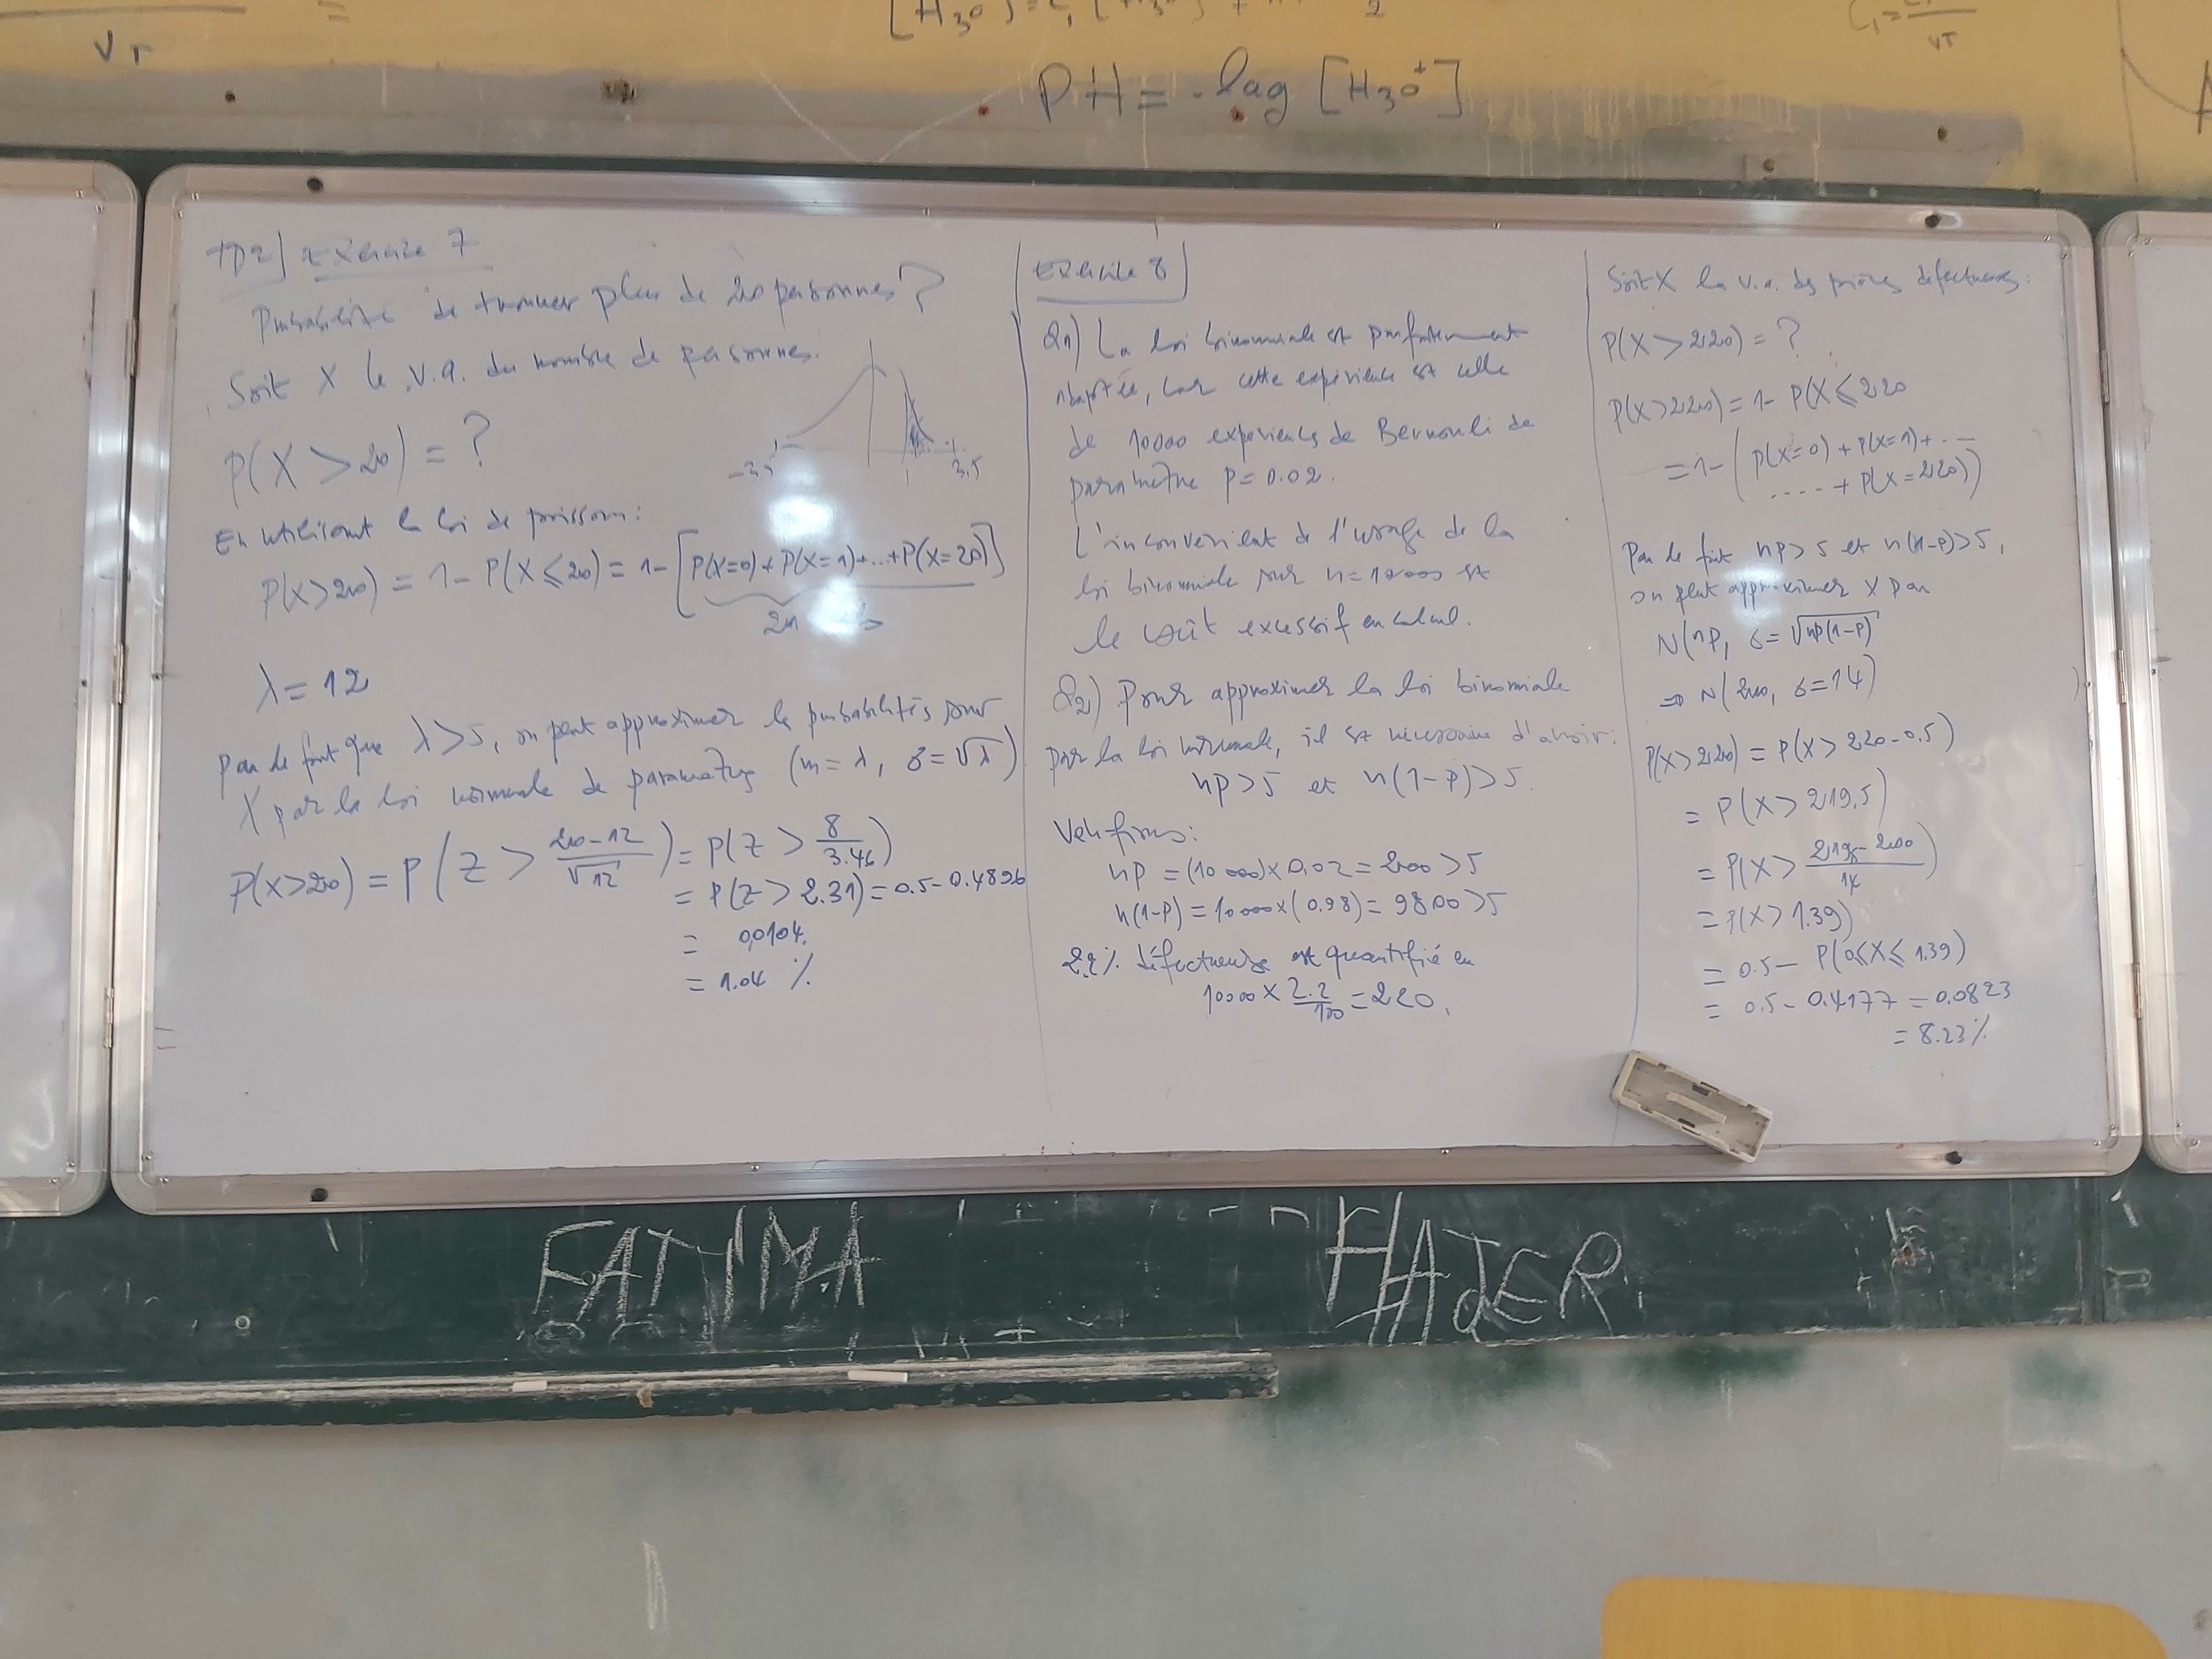 VT
PH = - log [H3O+]
C1 =
VT
TD2] Exercice 7
Probabilité de trouver plus de 20 personnes ?
Soit X le v.a. du nombre de personnes.
P(X > 20) = ?
-3.5
3.5
En utilisant la loi de poisson:
P(X>20) = 1 - P(X ⩽ 20) = 1 - [P(X=0) + P(X=1) + ... + P(X=20)]
λ = 12
par le fait que λ > 5, on peut approximer les probabilités sur
X par la loi normale de paramètres (m = λ, б = √λ)
P(X>20) = P(Z > 20-12/√12) = P(Z > 8/3.46)
= P(Z > 2.31) = 0.5 - 0.4896
= 0,0104.
= 1.04 %
Exercice 8
Q1) La loi binomiale est parfaitement
adaptée, car cette expérience est celle
de 10000 expériences de Bernouli de
paramètre p = 0.02.
L'inconvénient de l'usage de la
loi binomiale sur n = 10000 est
le coût excessif en calcul.
Q2) Pour approximer la loi binomiale
par la loi normale, il est nécessaire d'avoir:
np > 5 et n(1-p) > 5.
Vérifions:
np = (10 000) x 0.02 = 200 > 5
n(1-p) = 10000 x (0.98) = 9800 > 5
2.2% défectueuse est quantifié en
10000 x 2.2/100 = 220.
Soit X la v.a. des pièces défectueuses:
P(X > 220) = ?
P(X > 220) = 1 - P(X ⩽ 220
= 1 - (P(X=0) + P(X=1) + ...
.... + P(X = 220))
Par le fait np > 5 et n(1-p) > 5,
on peut approximer X par
N(np, б = √np(1-p))
⇒ N(200, б = 14)
P(X > 220) = P(X > 220 - 0.5)
= P(X > 219.5)
= P(X > 219,5 - 200/14)
= P(X > 1.39)
= 0.5 - P(0 ⩽ X ⩽ 1.39)
= 0.5 - 0.4177 = 0.0823
= 8.23%
FATIMA
HAJER